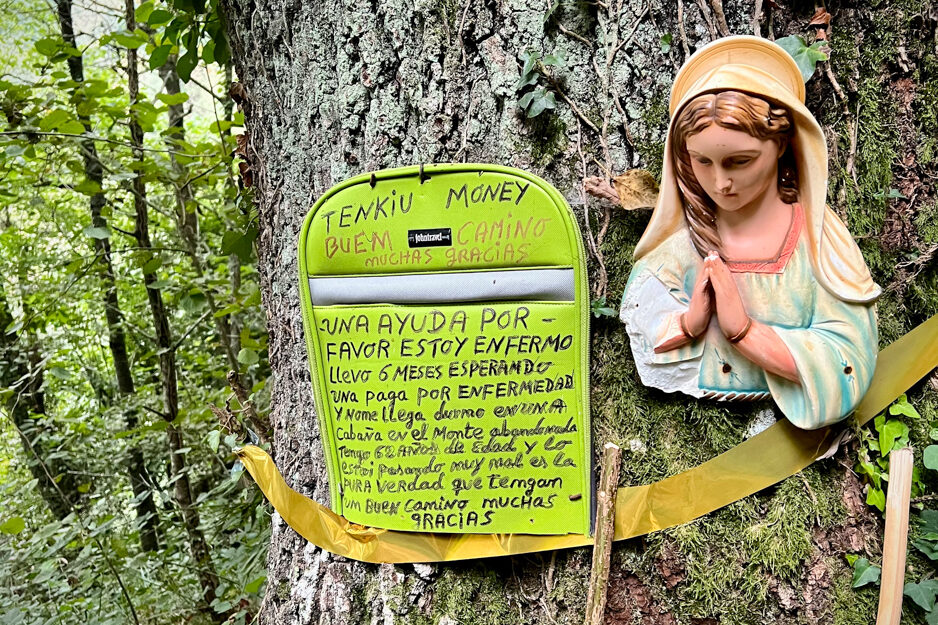 TENKIU MONEY
BUEM CAMINO
johntravel
MUCHAS gRACIAS
UNA AYUDA POR -
FAVOR ESTOY ENFERMO
LLevo 6 MESES ESPERANDO
una paga POR ENFERMEDAD
Y NOme llega durmo en UNA
Cabaña en el Monte abandonada
Tengo 62 AÑOS de Edad y Lo
estoi Pasando muy mal es la
PURA Verdad que tengan
UM BUEN Camino muchas
gRACIAS